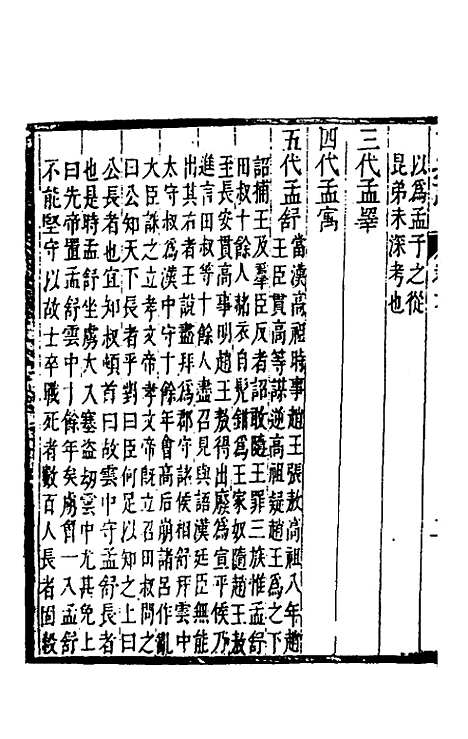 以爲孟子之從
昆弟未深考也
三代孟睪
四代孟寓
五代孟舒
當漢高祖時事趙王張敖高祖八年趙
王臣貫高等謀逆高祖疑趙王爲之下
詔捕王及羣臣反者詔敢隨王罪三族惟孟舒
田叔十餘人赭衣自髠鉗爲王家奴隨趙王敖
至長安貫高事明趙王敖得出廢爲宣平侯乃
進言田叔等十餘人盡召見與語漢廷臣無能
出其右者王說盡拜爲郡守諸侯相舒拜雲中
太守叔爲漢中守十餘年會高后崩諸呂作亂
大臣誅之立孝文帝孝文帝旣立召田叔問之
曰公知天下長者乎對曰臣何足以知之上曰
公長者也宜知叔頓首曰故雲中守孟舒長者
也是時孟舒坐虜大入塞盗刼雲中尤甚免上
曰先帝置孟舒雲中十餘年矣虜曾一入孟舒
不能堅守以故士卒戰死者數百人長者固殺